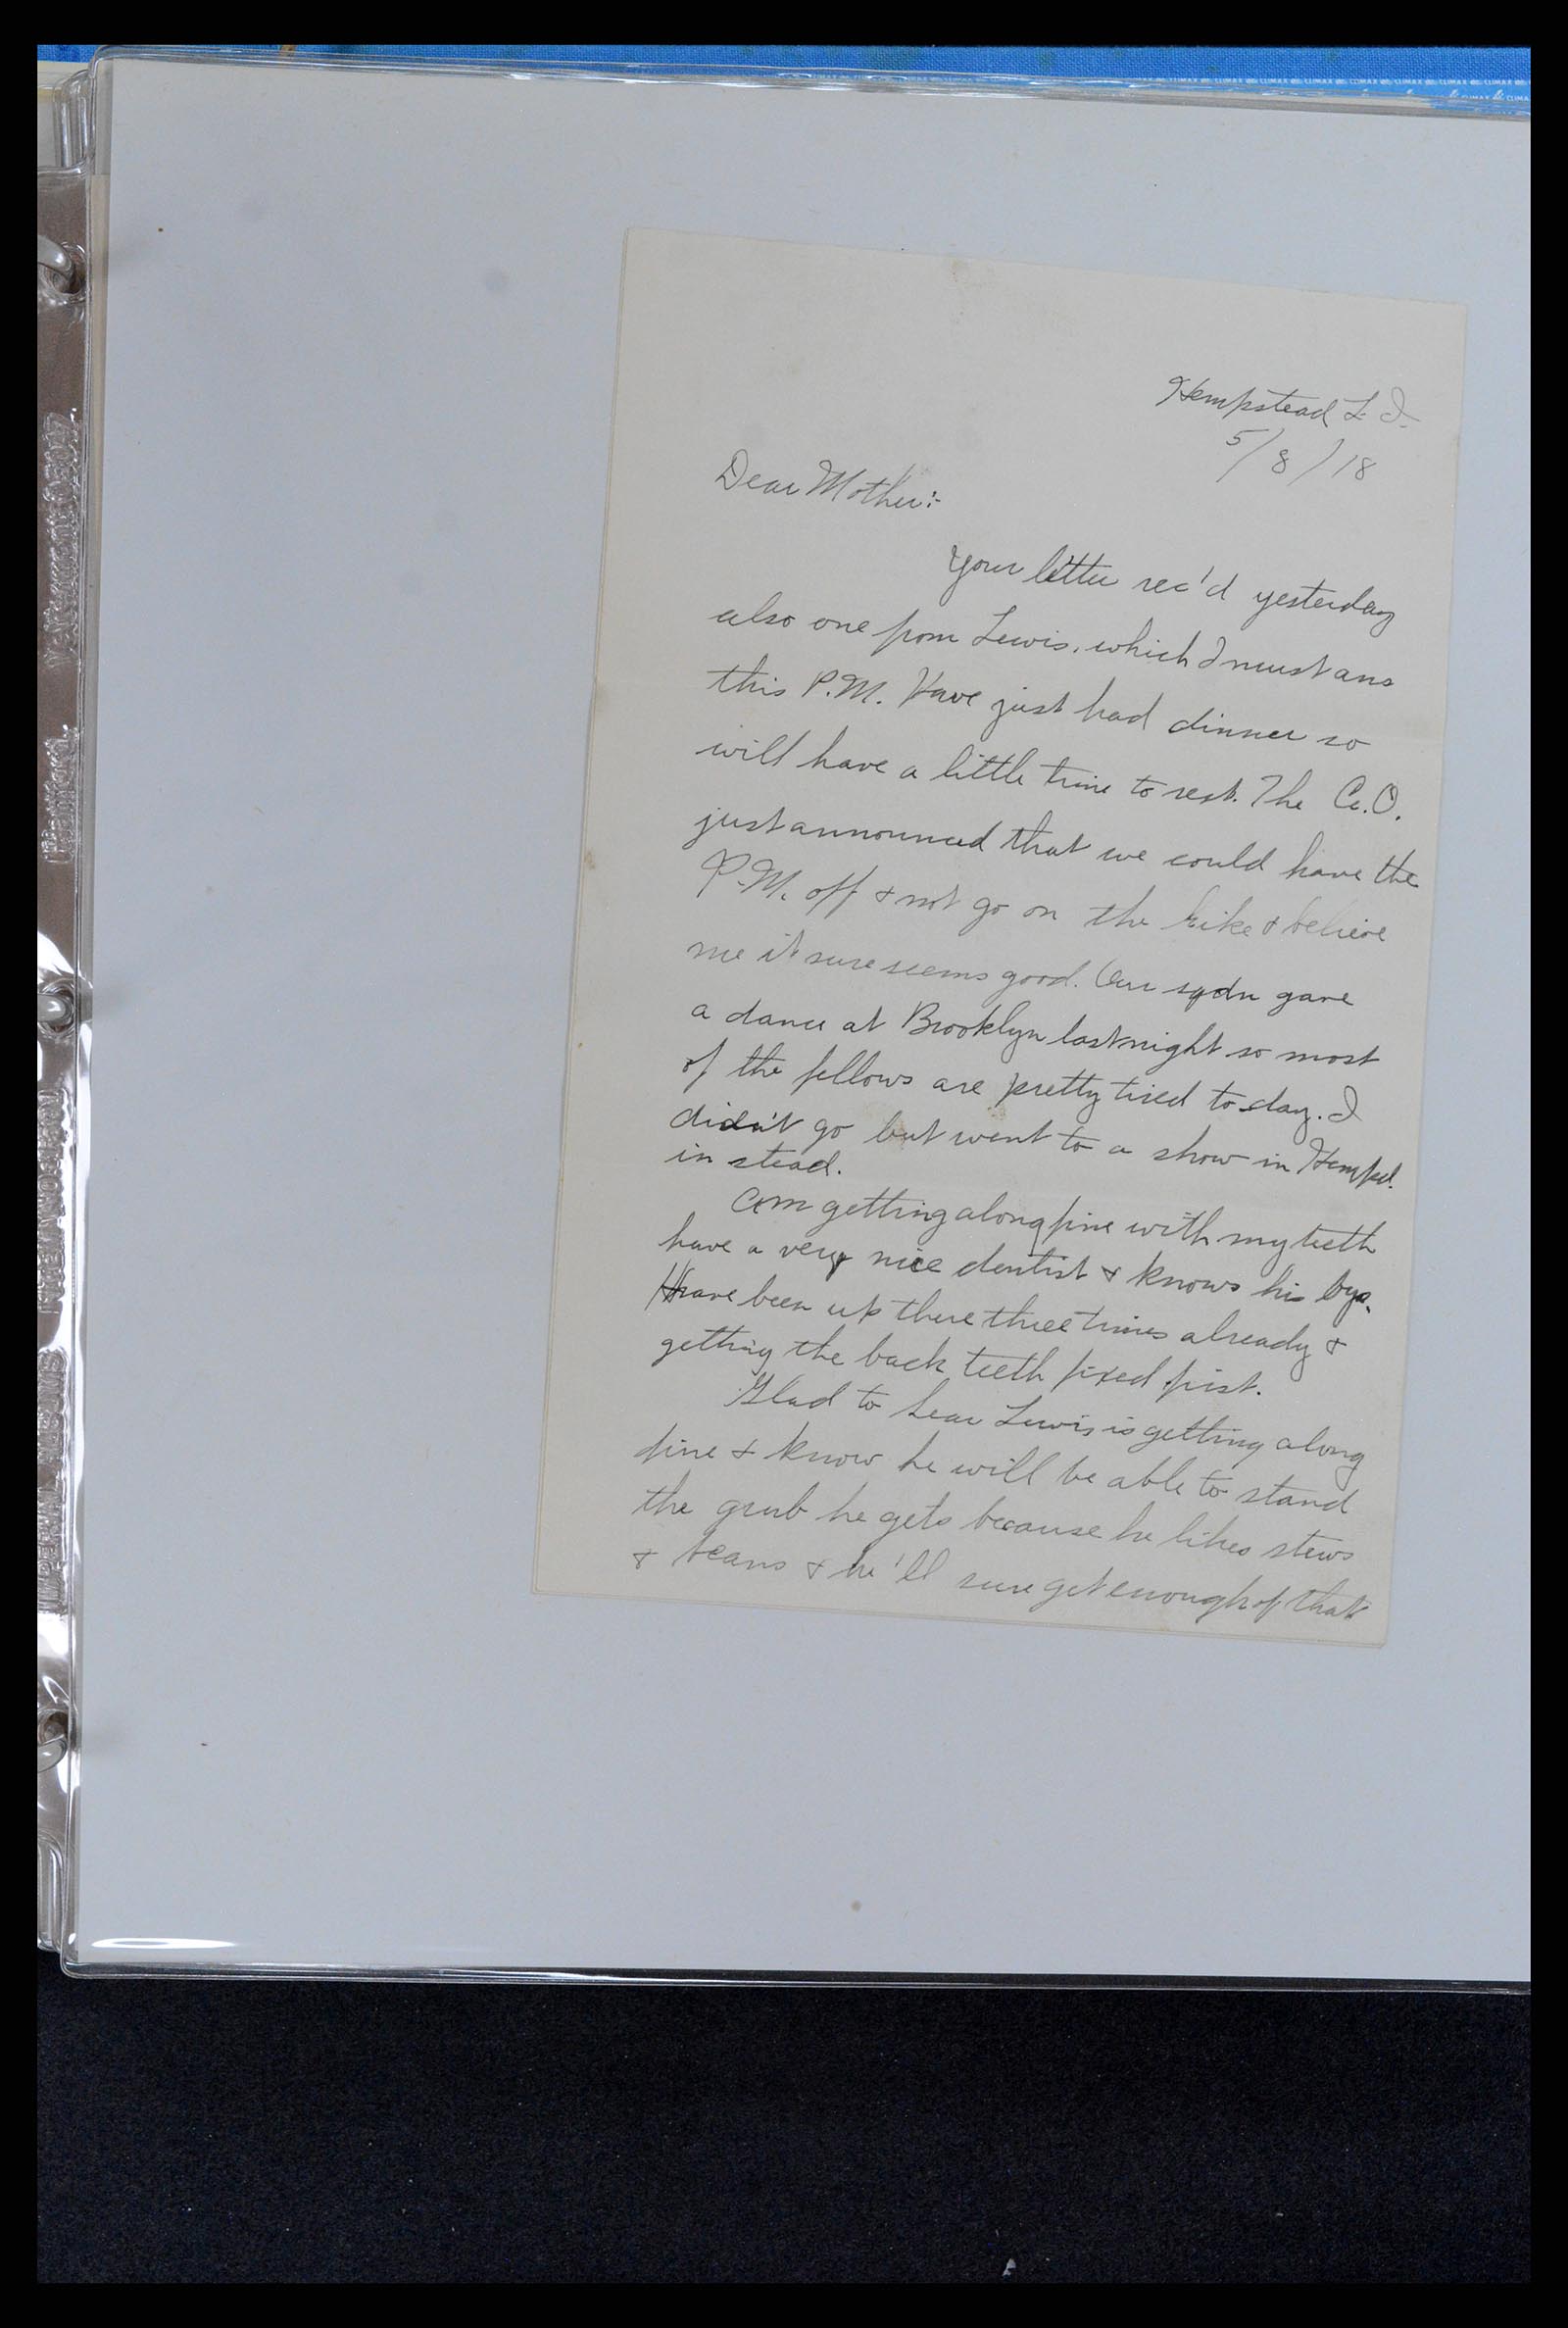 Hempstead L. I.
5/8/18
Dear Mother:-
Your letter rec'd yesterday
also one from Lewis, which I must ans
this P.M. Have just had dinner so
will have a little time to rest. The C.O.
just announced that we could have the
P.M. off & not go on the hike & believe
me it sure seems good. Our sqdn gave
a dance at Brooklyn last night so most
of the fellows are pretty tired to-day. I
didn't go but went to a show in Hempd.
in stead.
Am getting along fine with my teeth
have a very nice dentist & knows his bys.
Have been up there three times already &
getting the back teeth fixed first.
Glad to hear Lewis is getting along
fine & know he will be able to stand
the grub he gets because he likes stews
& beans & he'll sure get enough of that